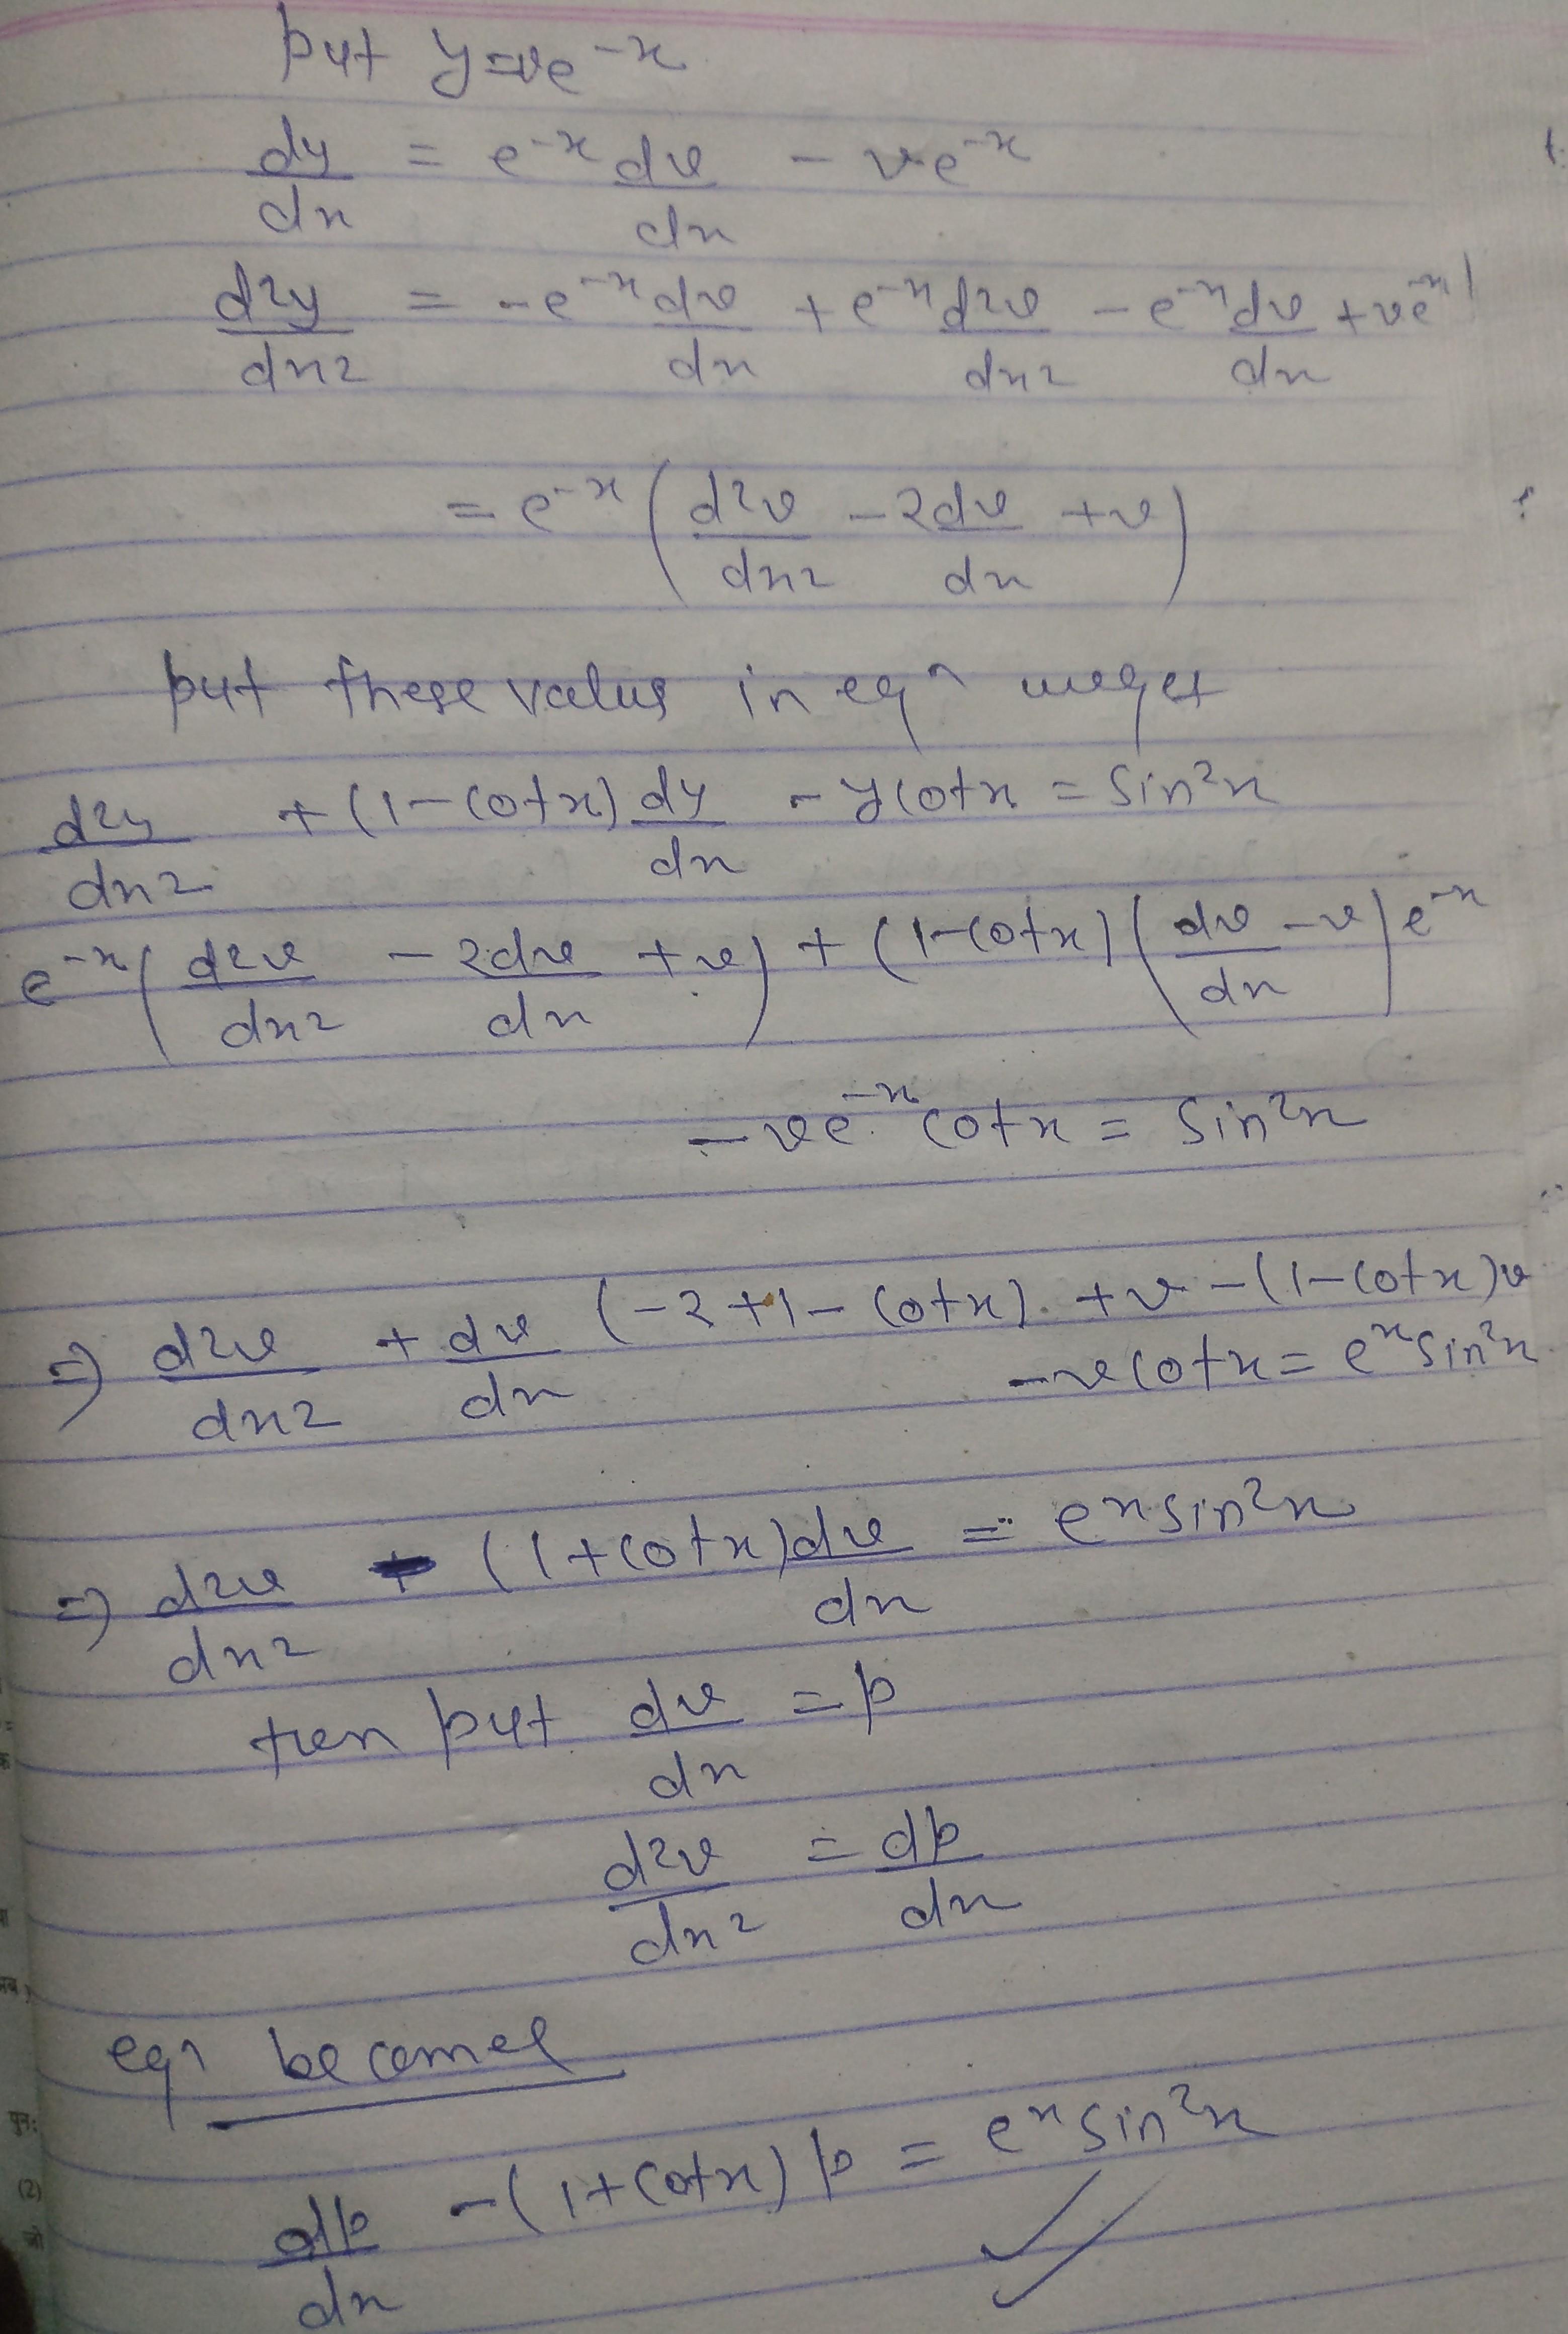 put y=ve^-x
dy/dx = e^-x dv/dx - ve^-x
d2y/dx2 = -e^-x dv/dx + e^-x d2v/dx2 - e^-x dv/dx + ve^-x
= e^-x (d2v/dx2 - 2dv/dx + v)
put these value in eqn we get
d2y/dx2 + (1-cotx) dy/dx - ycotx = sin²x
e^-x (d2v/dx2 - 2dv/dx + v) + (1-cotx) (dv/dx - v) e^-x
- ve^-x cotx = sin²x
=) d2v/dx2 + dv/dx (-2+1-cotx) + v - (1-cotx)v
- vcotx = e^x sin²x
=) d2v/dx2 - (1+cotx) dv/dx = e^x sin²x
then put dv/dx = p
d2v/dx2 = dp/dx
eqn becomes
dp/dx - (1+cotx) p = e^x sin²x
पुन:
(2)